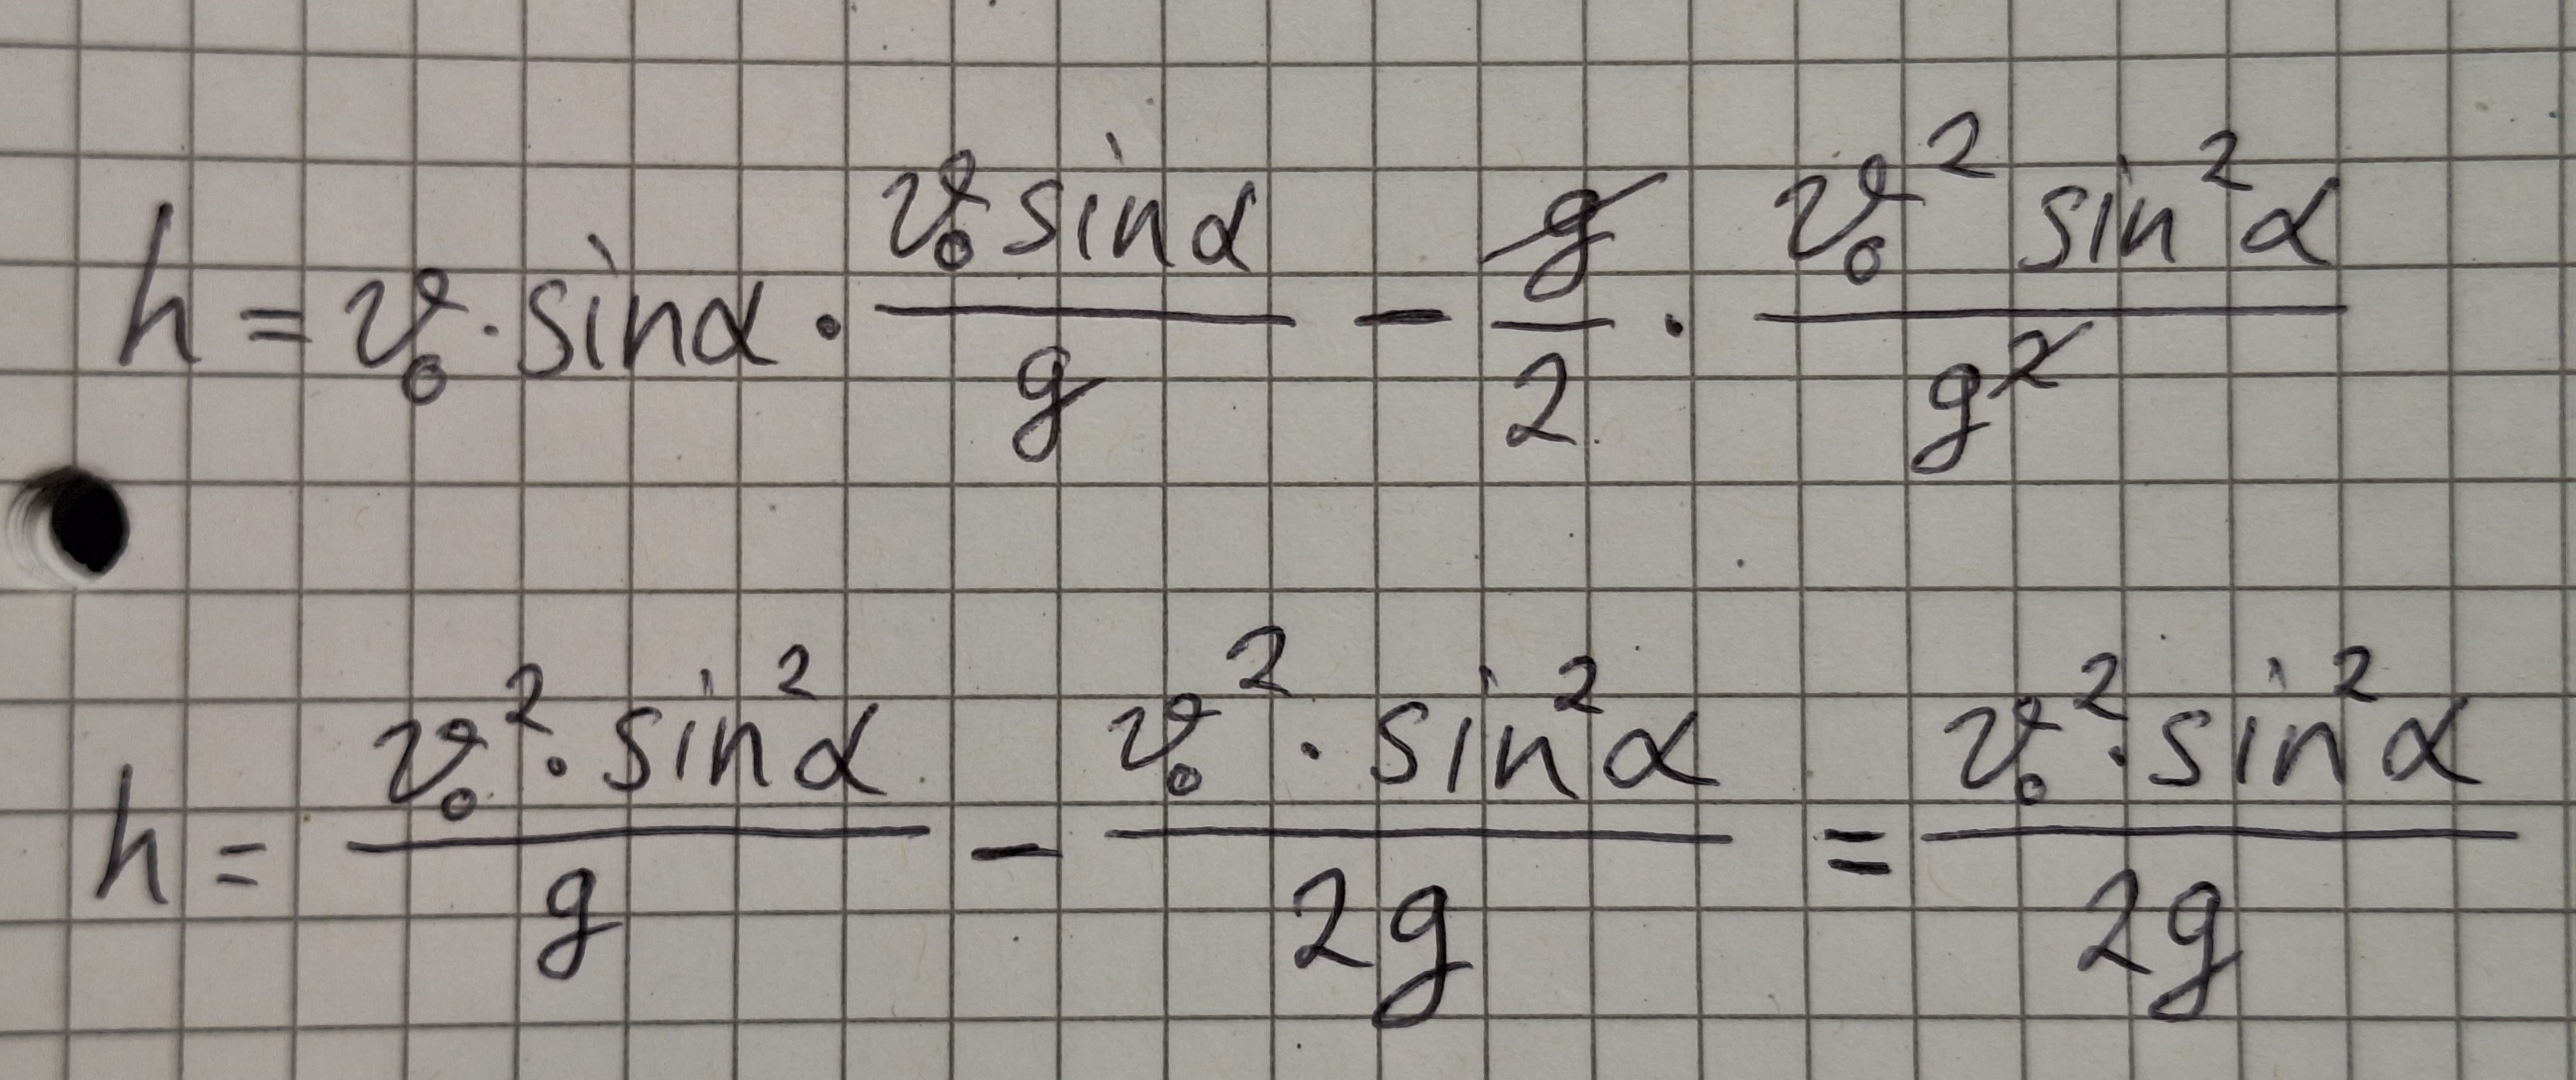 h = v₀ · sinα · (v₀ sinα)/g − g/2 · (v₀² sin²α)/g²
h = (v₀² · sin²α)/g − (v₀² · sin²α)/2g = (v₀² · sin²α)/2g